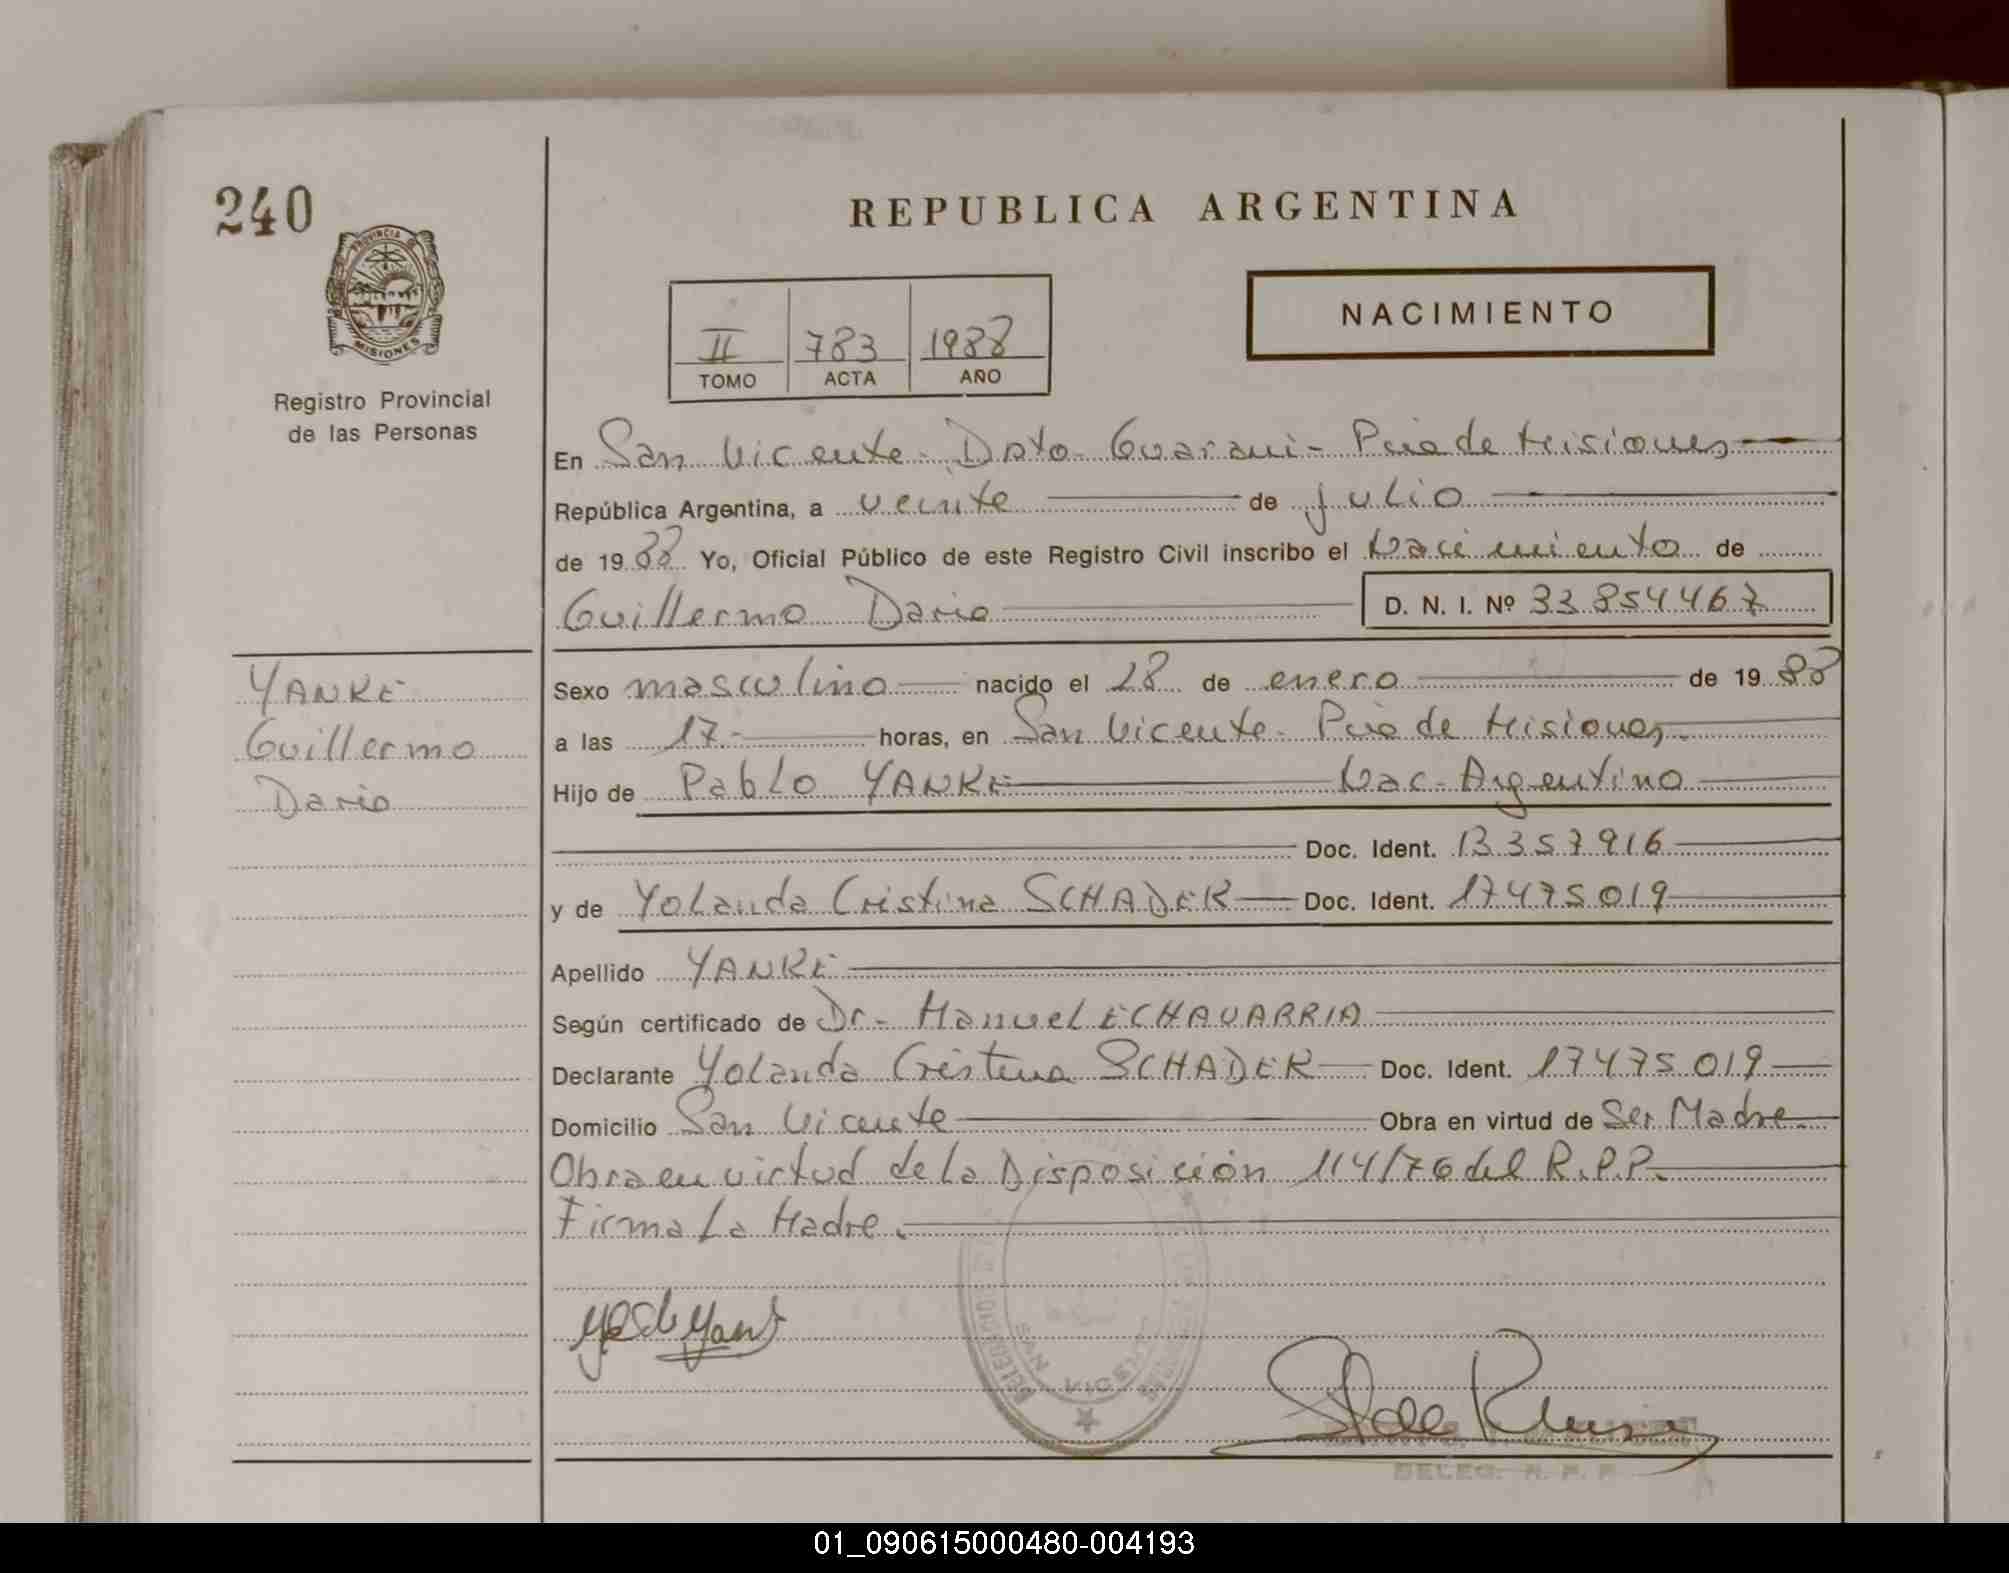 240
PROVINCIA DE
MISIONES
Registro Provincial
de las Personas
REPUBLICA ARGENTINA
NACIMIENTO
II 783 1988
TOMO ACTA AÑO
En San Vicente - Dpto - Guarani - Pcia de Misiones
República Argentina, a veinte de julio
de 1988 Yo, Oficial Público de este Registro Civil inscribo el Nacimiento de
Guillermo Dario D. N. I. Nº 33854467
YANKE
Guillermo
Dario
Sexo masculino nacido el 28 de enero de 1988
a las 17.- horas, en San Vicente - Pcia de Misiones.
Hijo de Pablo YANKE Nac - Argentino
Doc. Ident. 13357916
y de Yolanda Cristina SCHADER Doc. Ident. 17475019
Apellido YANKE
Según certificado de Dr - Manuel ECHAVARRIA
Declarante Yolanda Cristina SCHADER Doc. Ident. 17475019
Domicilio San Vicente Obra en virtud de Ser Madre.
Obra en virtud de la Disposición 114/76 del R.P.P.
Firma La Madre.
SAN VICENTE
DELEG. R. P. P.
01_090615000480-004193